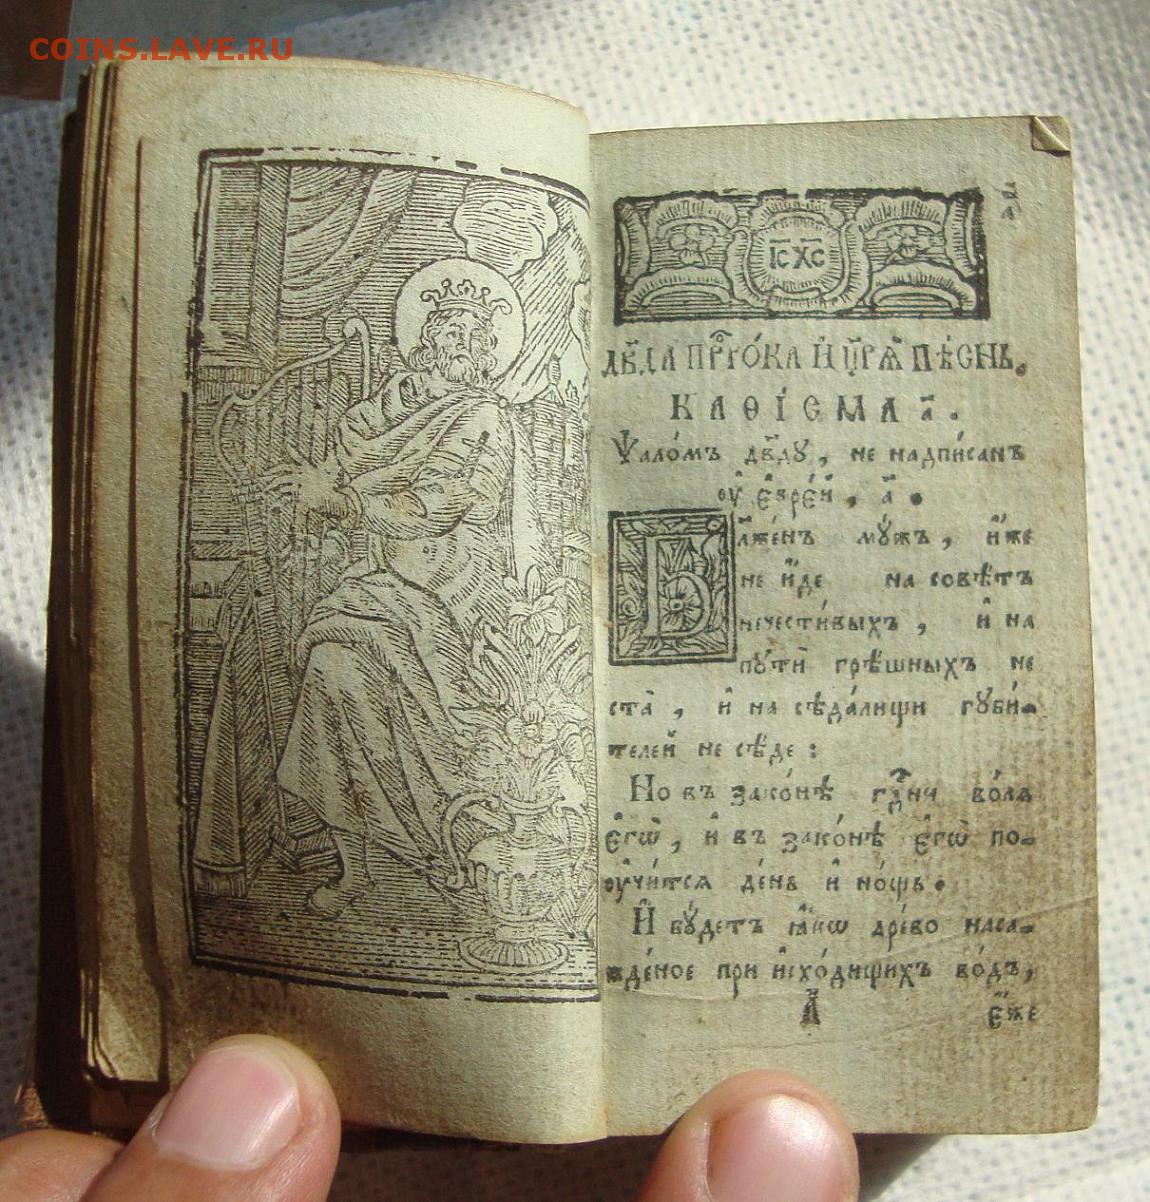 COINS.LAVE.RU
а҃
І҃С Х҃С
ДВ҃ДА ПРⷪ҇РО́КА И҆ ЦР҃Ѧ̀ ПѢ́СНЬ.
КАѲІ́СМА а҃.
Ѱало́мъ дв҃ду, не надпи́санъ
ᲂу҆ є҆вре́й, а҃.
Бл҃же́нъ мꙋ́жъ, и҆́же
не и҆́де на совѣ́тъ
нечести́выхъ, и҆ на
пꙋтѝ грѣ́шныхъ не
ста̀, и҆ на сѣда́лищи гꙋби́-
телей не сѣ́де:
Но въ зако́нѣ гдⷭ҇ни во́лѧ
є҆гѡ̀, и҆ въ зако́нѣ є҆гѡ̀ по-
ᲂучи́тсѧ де́нь и҆ но́щь.
И҆ бꙋ́детъ ꙗ҆́кѡ дре́во наса-
жде́ное при и҆схо́дищихъ во́дъ,
є҆́же